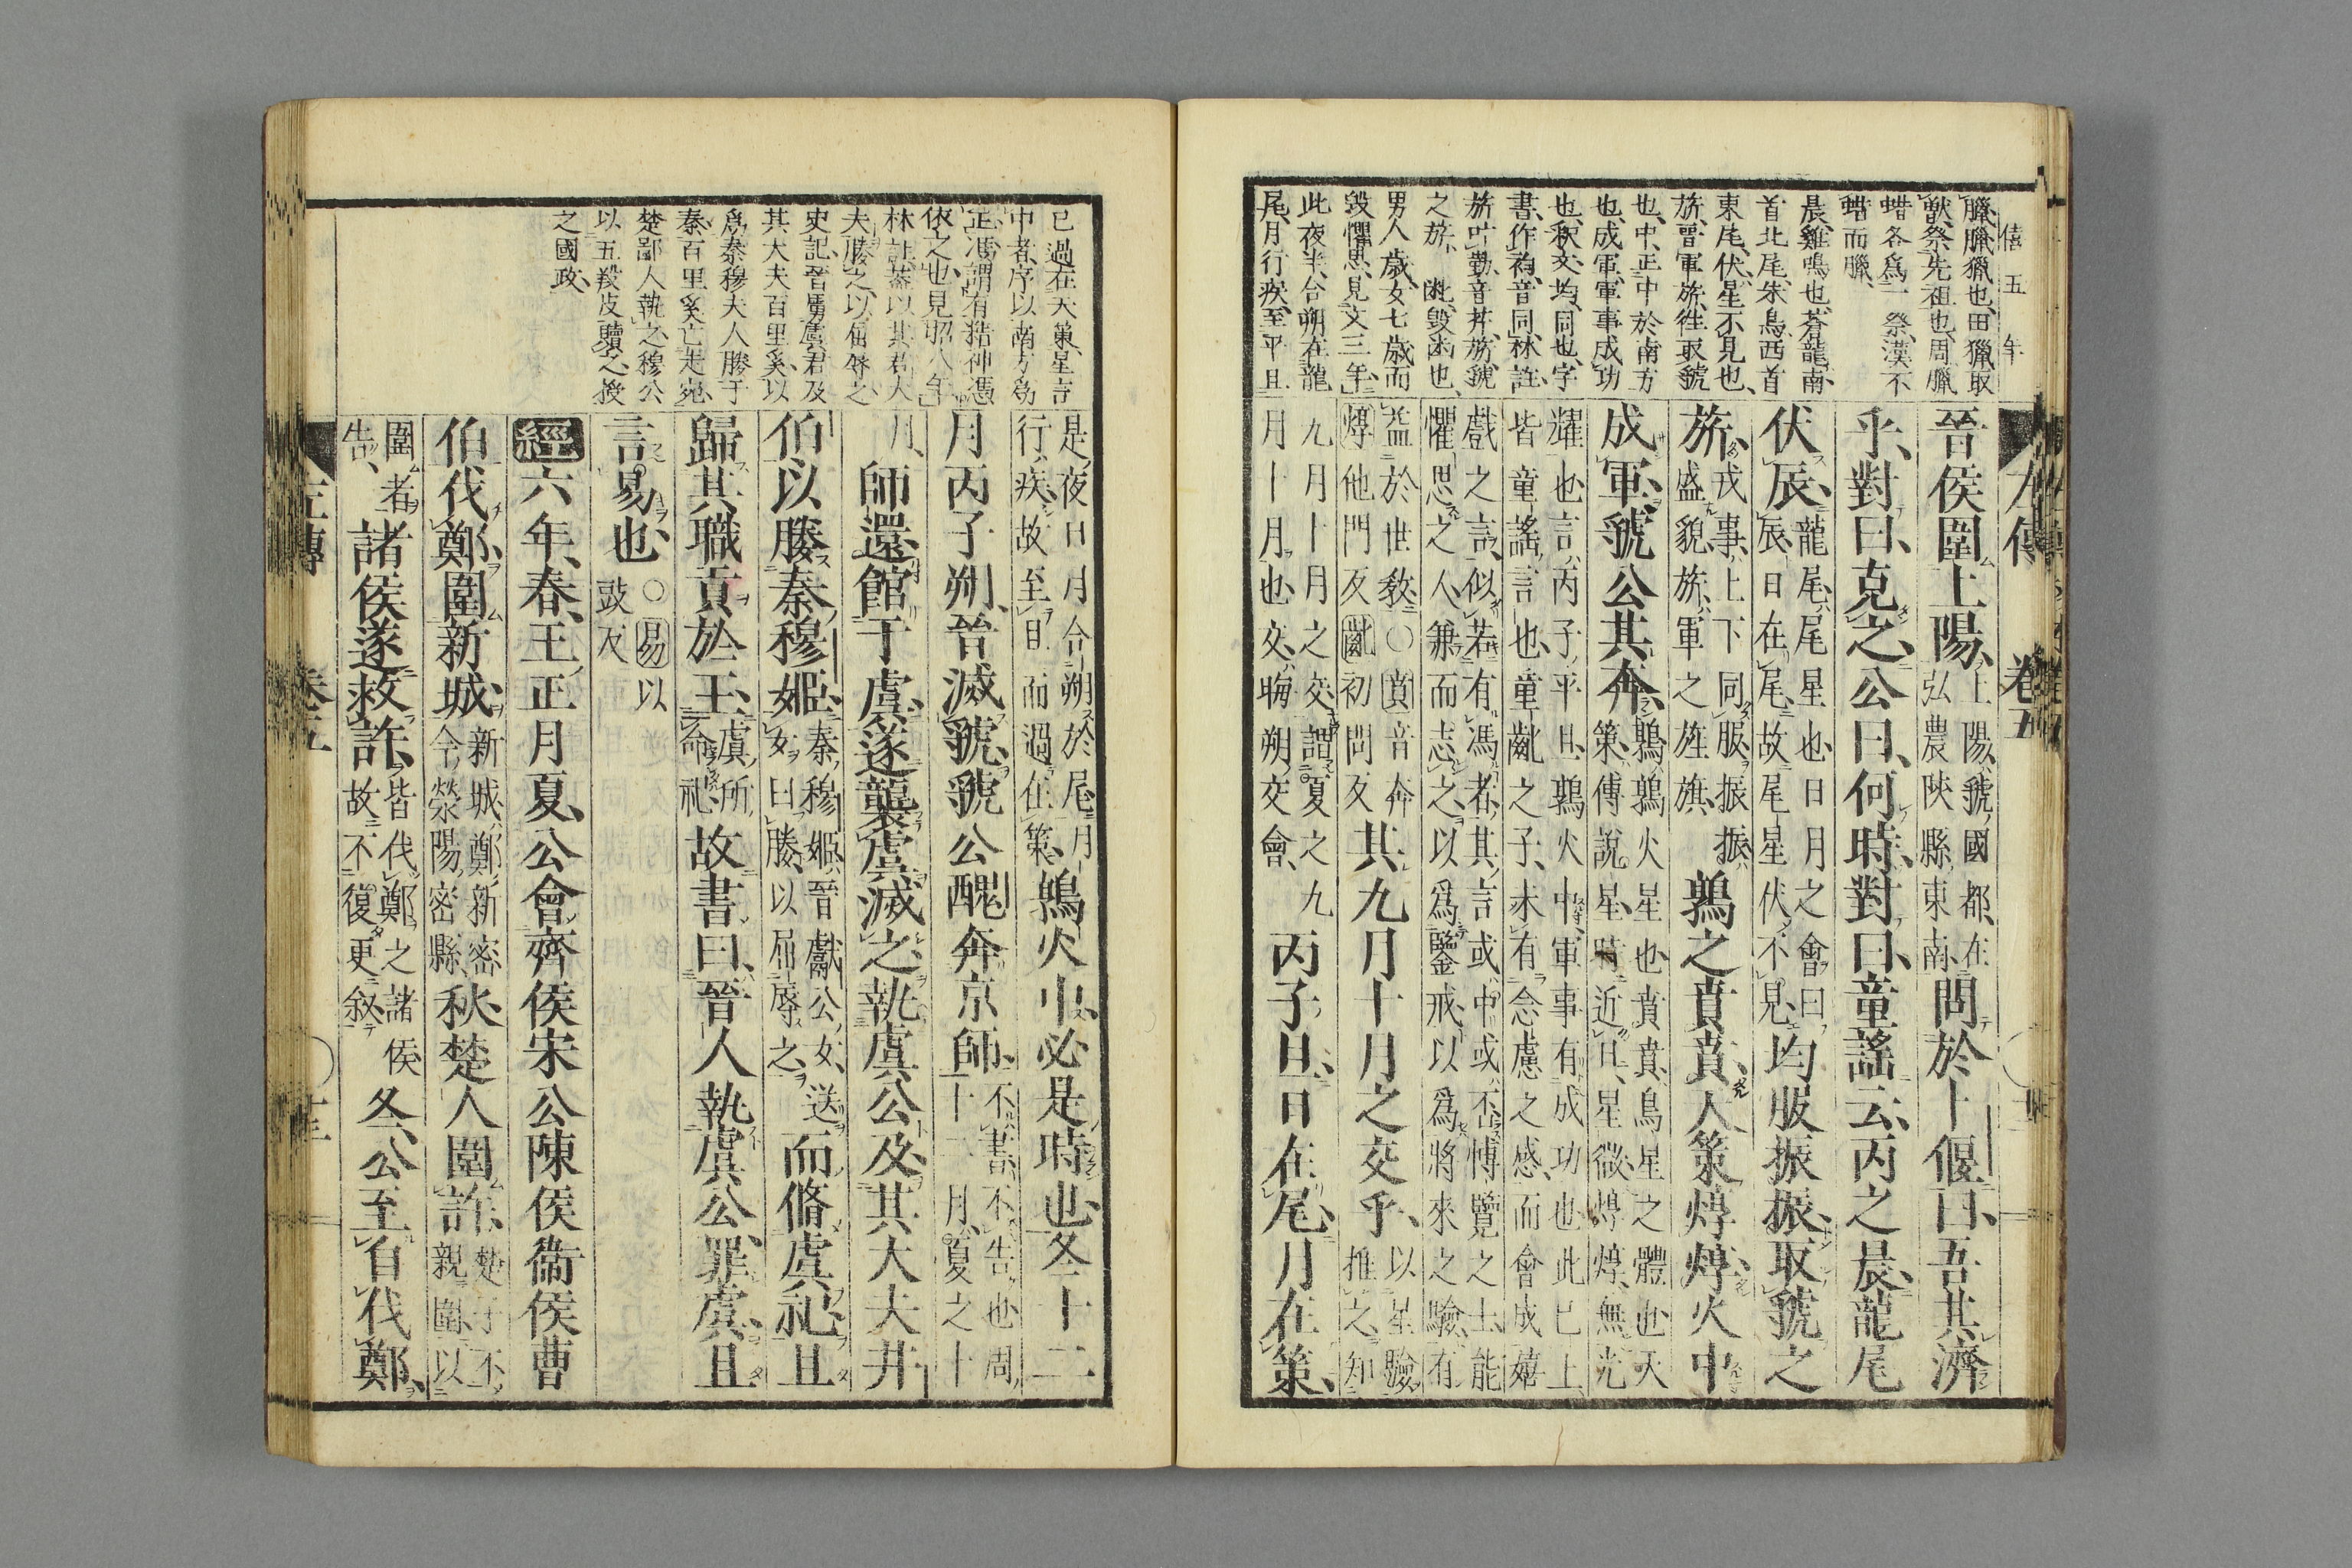 僖五年
臘臘獵也田獵取
獸祭先祖也周臘
蜡各爲一祭漢不
蜡而臘
晨雞鳴也蒼龍南
首北尾朱鳥西首
東尾伏星不見也
旂曾軍旅往取虢
也中正中於南方
也成軍軍事成功
也釈文均同也字
書作袀音同林註
旂叶勤音芹旂虢
之旂 齔毀齒也
男人歲女七歲而
毀懼思見文三年
此夜半合朔在龍
尾月行疾至平旦
左傳 卷五
晉侯圍上陽上陽虢國都在
弘農陝縣東南問於卜偃曰吾其濟
乎對曰克之公曰何時對曰童謠云丙之晨龍尾
伏辰龍尾尾星也日月之會曰
辰日在尾故尾星伏不見均服振振取虢之
旂戎事上下同服振振
盛貌旂軍之旌旗鶉之賁賁天策焞焞火中
成軍虢公其奔鶉鶉火星也賁賁鳥星之體也天
策傅說星時近日星微焞焞無光
耀也言丙子平旦鶉火中軍事有成功也此已上
皆童謠言也童齔之子未有念慮之感而會成嬉
戲之言似若有馮者其言或中或否博覽之士能
懼思之人兼而志之以爲鑒戒以爲將來之驗有
益於世教〇賁音奔
焞他門反齔初問反其九月十月之交乎以星驗
推之知
九月十月之交謂夏之九
月十月也交晦朔交會丙子旦日在尾月在策
已過在天策星言
中者序以南方爲
正馮謂有猶神憑
依之也見昭八年
林註蓋以其君大
夫媵之以屈辱之
史記晉虜虞君及
其大夫百里奚以
爲秦穆夫人媵于
秦百里奚亡走宛
楚鄙人執之穆公
以五羖皮贖之授
之國政
是夜日月合朔於尾月
行疾故至旦而過在策鶉火中必是時也冬十二
月丙子朔晉滅虢虢公醜奔京師不書不告也周
十二月夏之十
月師還館于虞遂襲虞滅之執虞公及其大夫井
伯以媵秦穆姬秦穆姬晉獻公女送
女曰媵以屈辱之而脩虞祀且
歸其職貢於王虞所
命祀故書曰晉人執虞公罪虞且
言易也〇易以
豉反
經六年春王正月夏公會齊侯宋公陳侯衞侯曹
伯伐鄭圍新城新城鄭新密
今滎陽密縣秋楚人圍許楚子不
親圍以
圍者
告諸侯遂救許皆伐鄭之諸侯
故不復更敘冬公至自伐鄭
左傳 卷五